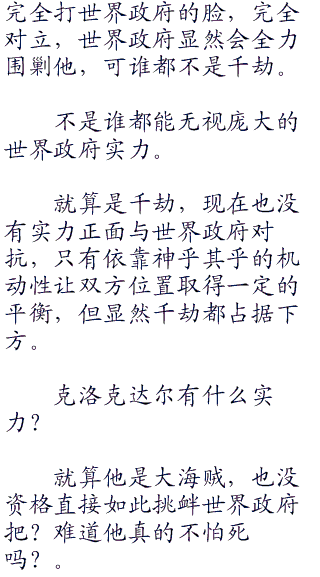 完全打世界政府的脸，完全
对立，世界政府显然会全力
围剿他，可谁都不是千劫。
不是谁都能无视庞大的
世界政府实力。
就算是千劫，现在也没
有实力正面与世界政府对
抗，只有依靠神乎其乎的机
动性让双方位置取得一定的
平衡，但显然千劫都占据下
方。
克洛克达尔有什么实
力？
就算他是大海贼，也没
资格直接如此挑衅世界政府
把？难道他真的不怕死
吗？。